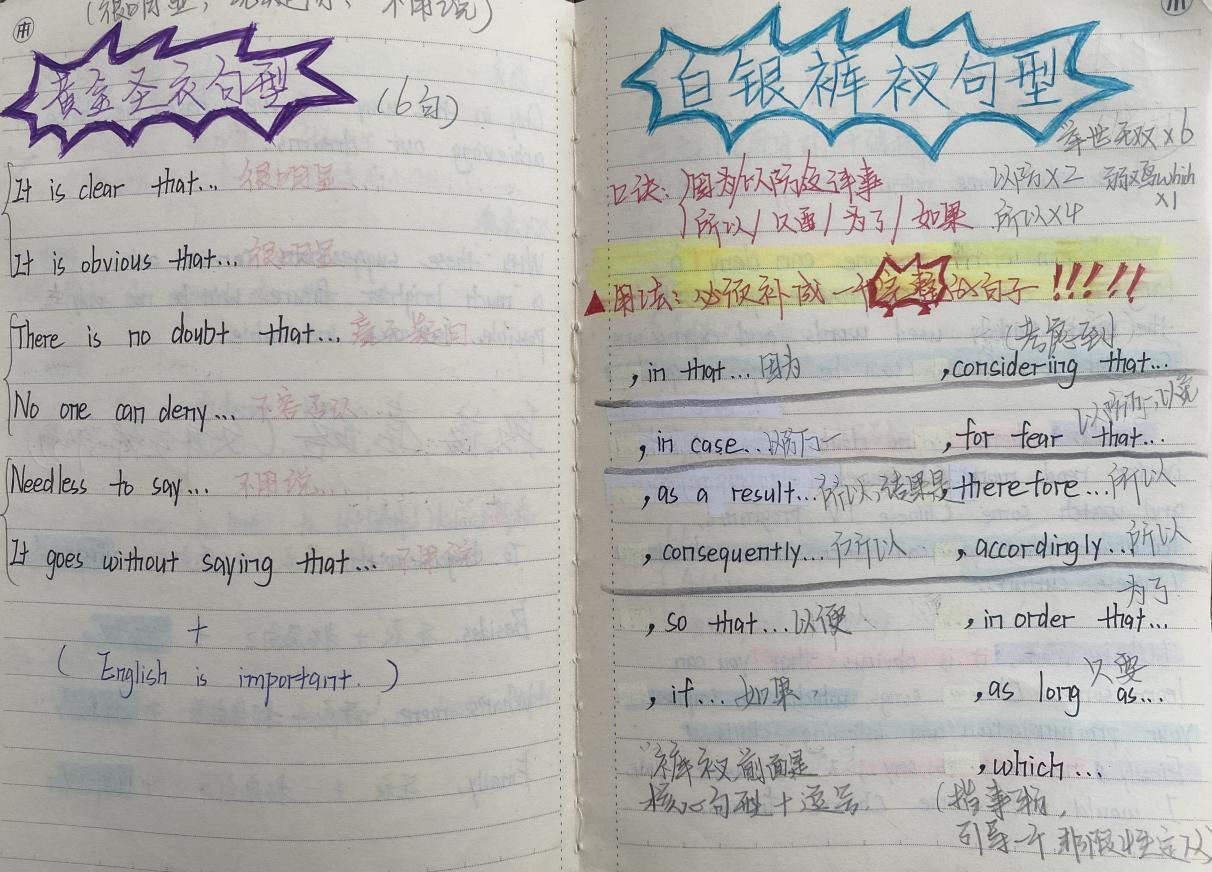 (很明显, 不用说)
黄金圣衣句型 (6句)
It is clear that... 很明显...
It is obvious that... 很明显...
There is no doubt that... 毫不疑问
No one can deny... 不容否认...
Needless to say... 不用说...
It goes without saying that... 不用说
+
( English is important. )
白银裤衩句型
举世无双×6
口诀: 因为/以防这件事 以防×2 弱鸡which ×1
所以/只要/为了/如果 所以×4
▲用法: 必须补成一个完整的句子 !!!!!
, in that... 因为
, considering that... (考虑到)
, in case... 以防万一
, for fear that... 以防万一,以免
, as a result... 所以,结果是
, therefore... 所以
, consequently... 所以
, accordingly... 所以
, so that... 以便
, in order that... 为了
, if... 如果
, as long as... 只要
裤衩前面是
核心句型+逗号
, which...
(指事物,
引导一个非限性定从)